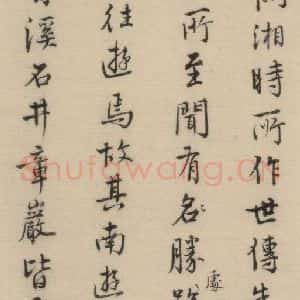 湘時所作世傳
所至聞有名勝
處
往遊焉故其南遊
溪石井章巖皆
Shufawang.cn